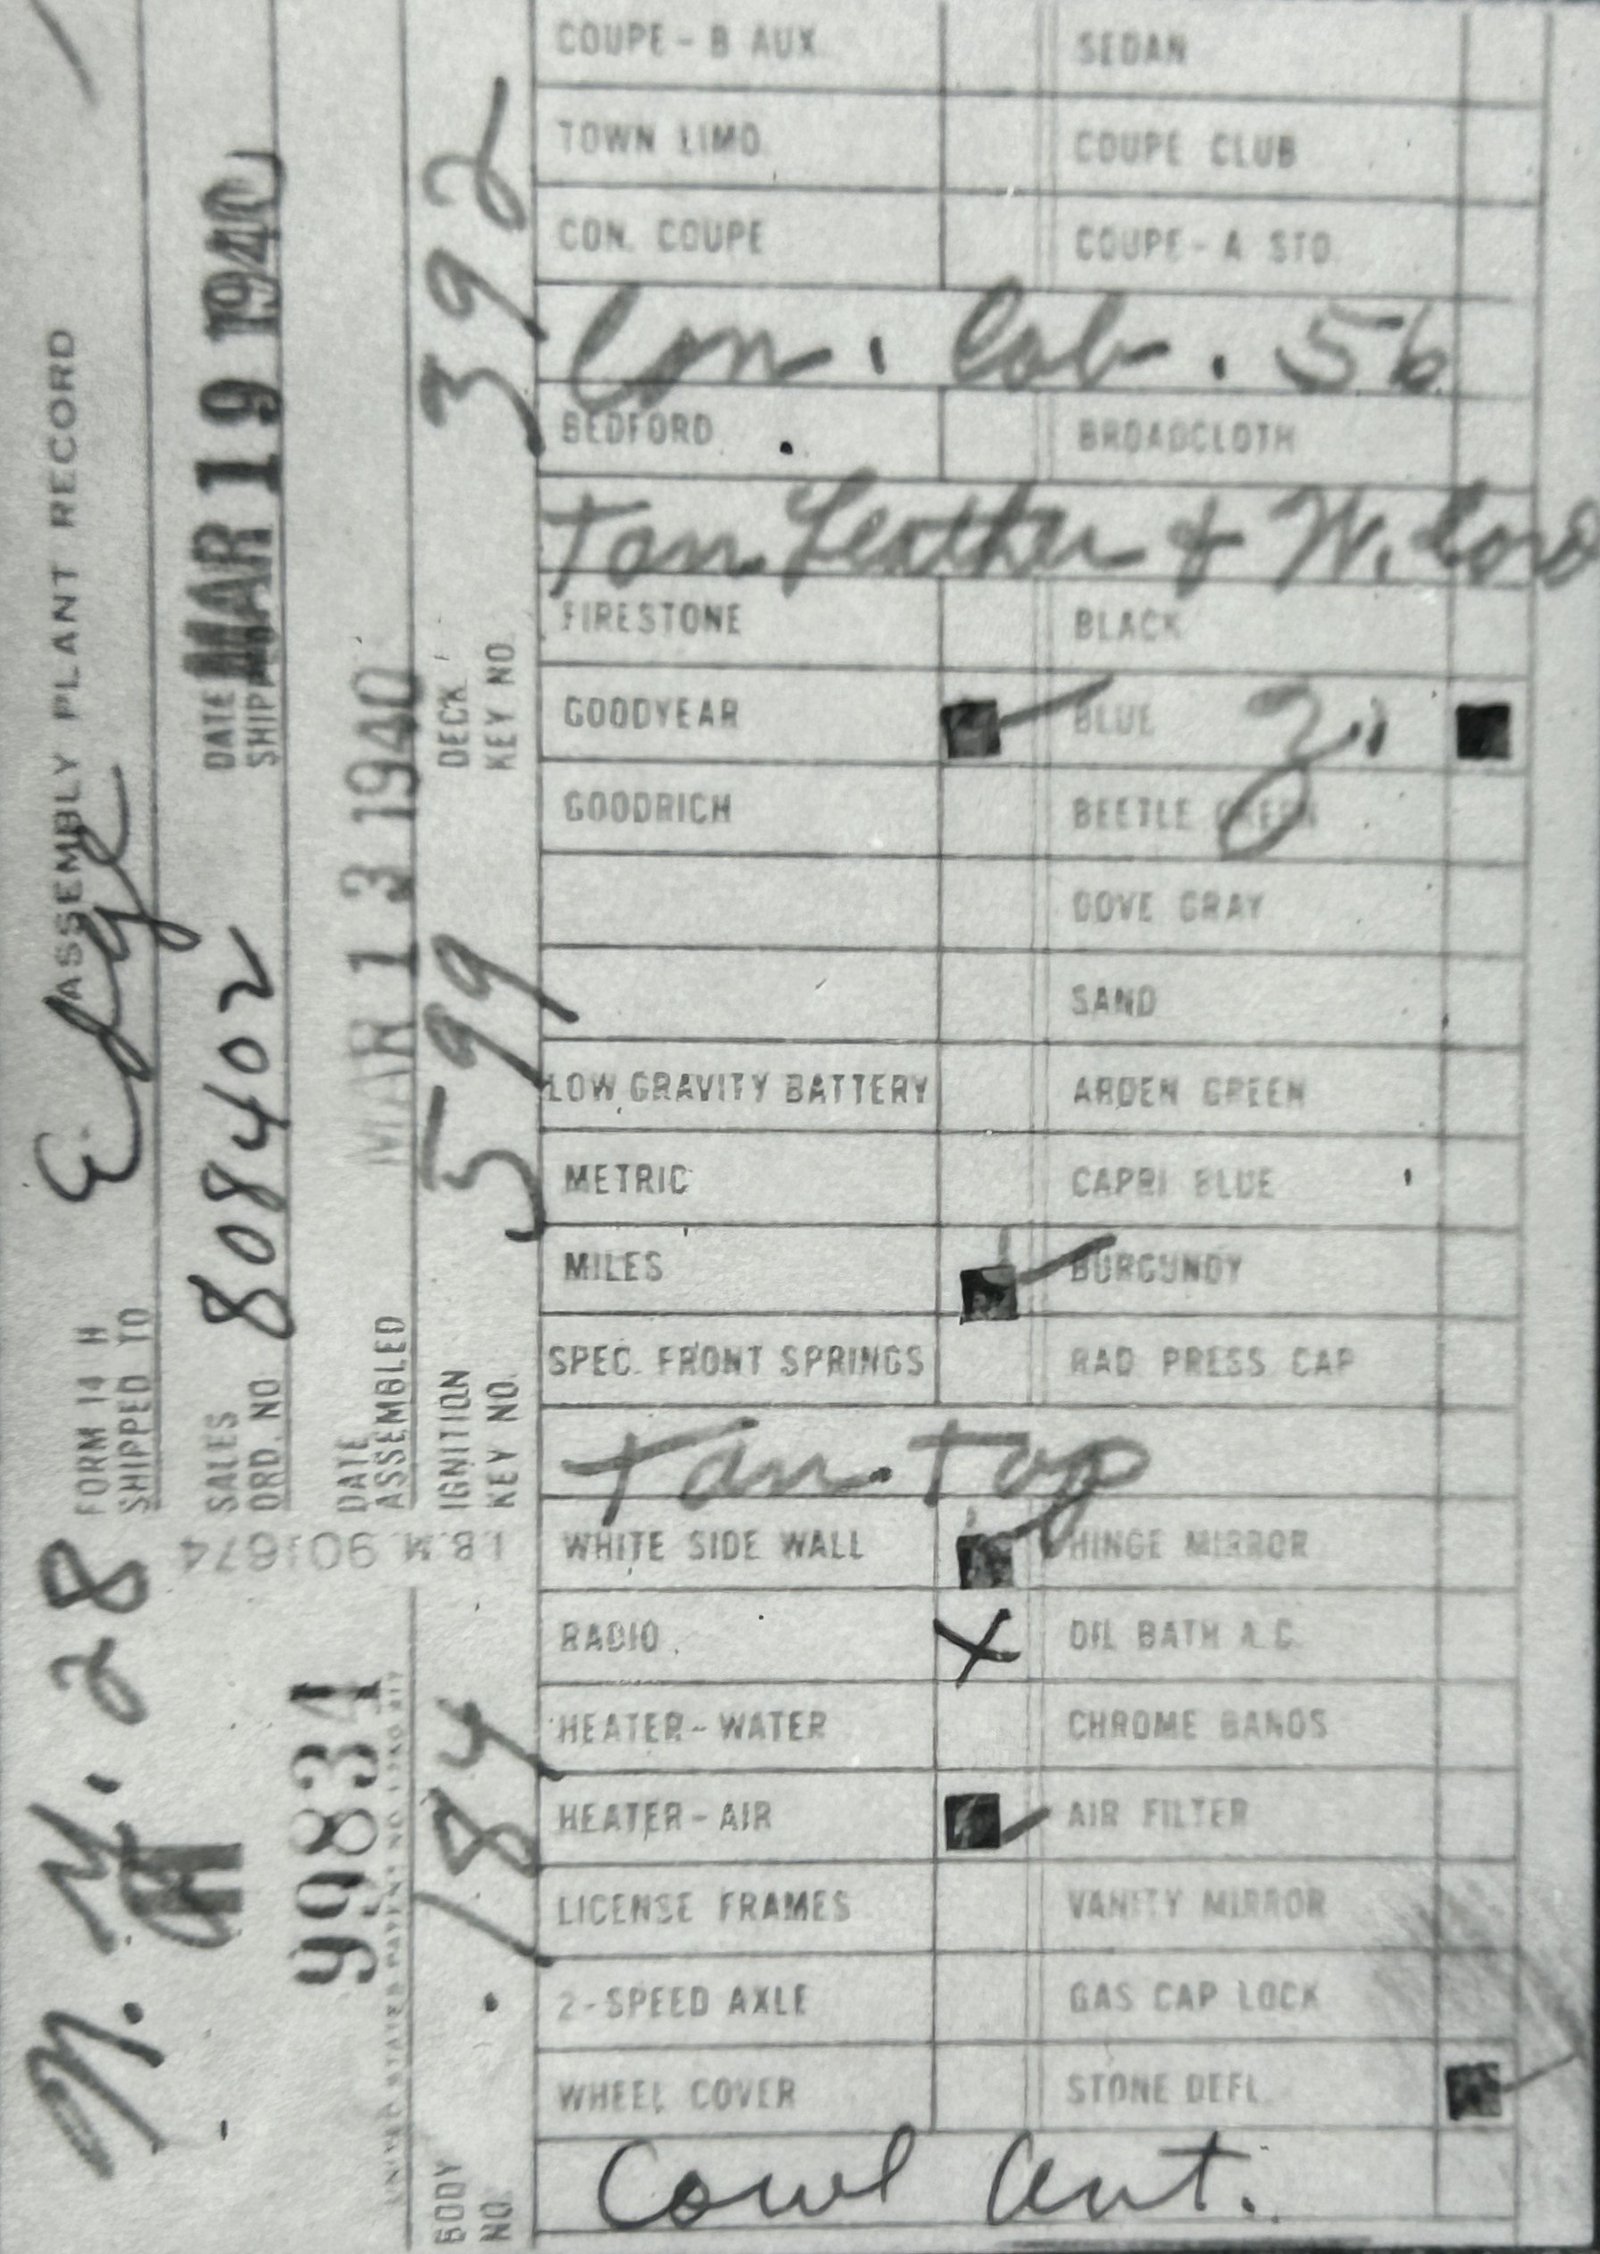 FORM 14 H ASSEMBLY PLANT RECORD
SHIPPED TO
SALES ORD. NO 808402 DATE SHIPPED MAR 19 1940
DATE ASSEMBLED MAR 13 1940
IGNITION KEY NO. 599 DECK KEY NO. 392
N. Y. 28
H
99834
I.B.M. 901674
BODY NO. 184
COUPE - B AUX. SEDAN
TOWN LIMO. COUPE CLUB
CON. COUPE COUPE - A STD.
Con. Cab. 56
BEDFORD BROADCLOTH
Tan Leather & W. Cord
FIRESTONE BLACK
GOODYEAR BLUE
GOODRICH BEETLE GREEN
DOVE GRAY
SAND
LOW GRAVITY BATTERY ARDEN GREEN
METRIC CAPRI BLUE
MILES BURGUNDY
SPEC. FRONT SPRINGS RAD PRESS. CAP
Tan top
WHITE SIDE WALL HINGE MIRROR
RADIO X OIL BATH A.C.
HEATER - WATER CHROME BANDS
HEATER - AIR AIR FILTER
LICENSE FRAMES VANITY MIRROR
2 - SPEED AXLE GAS CAP LOCK
WHEEL COVER STONE DEFL.
Cowl Ant.